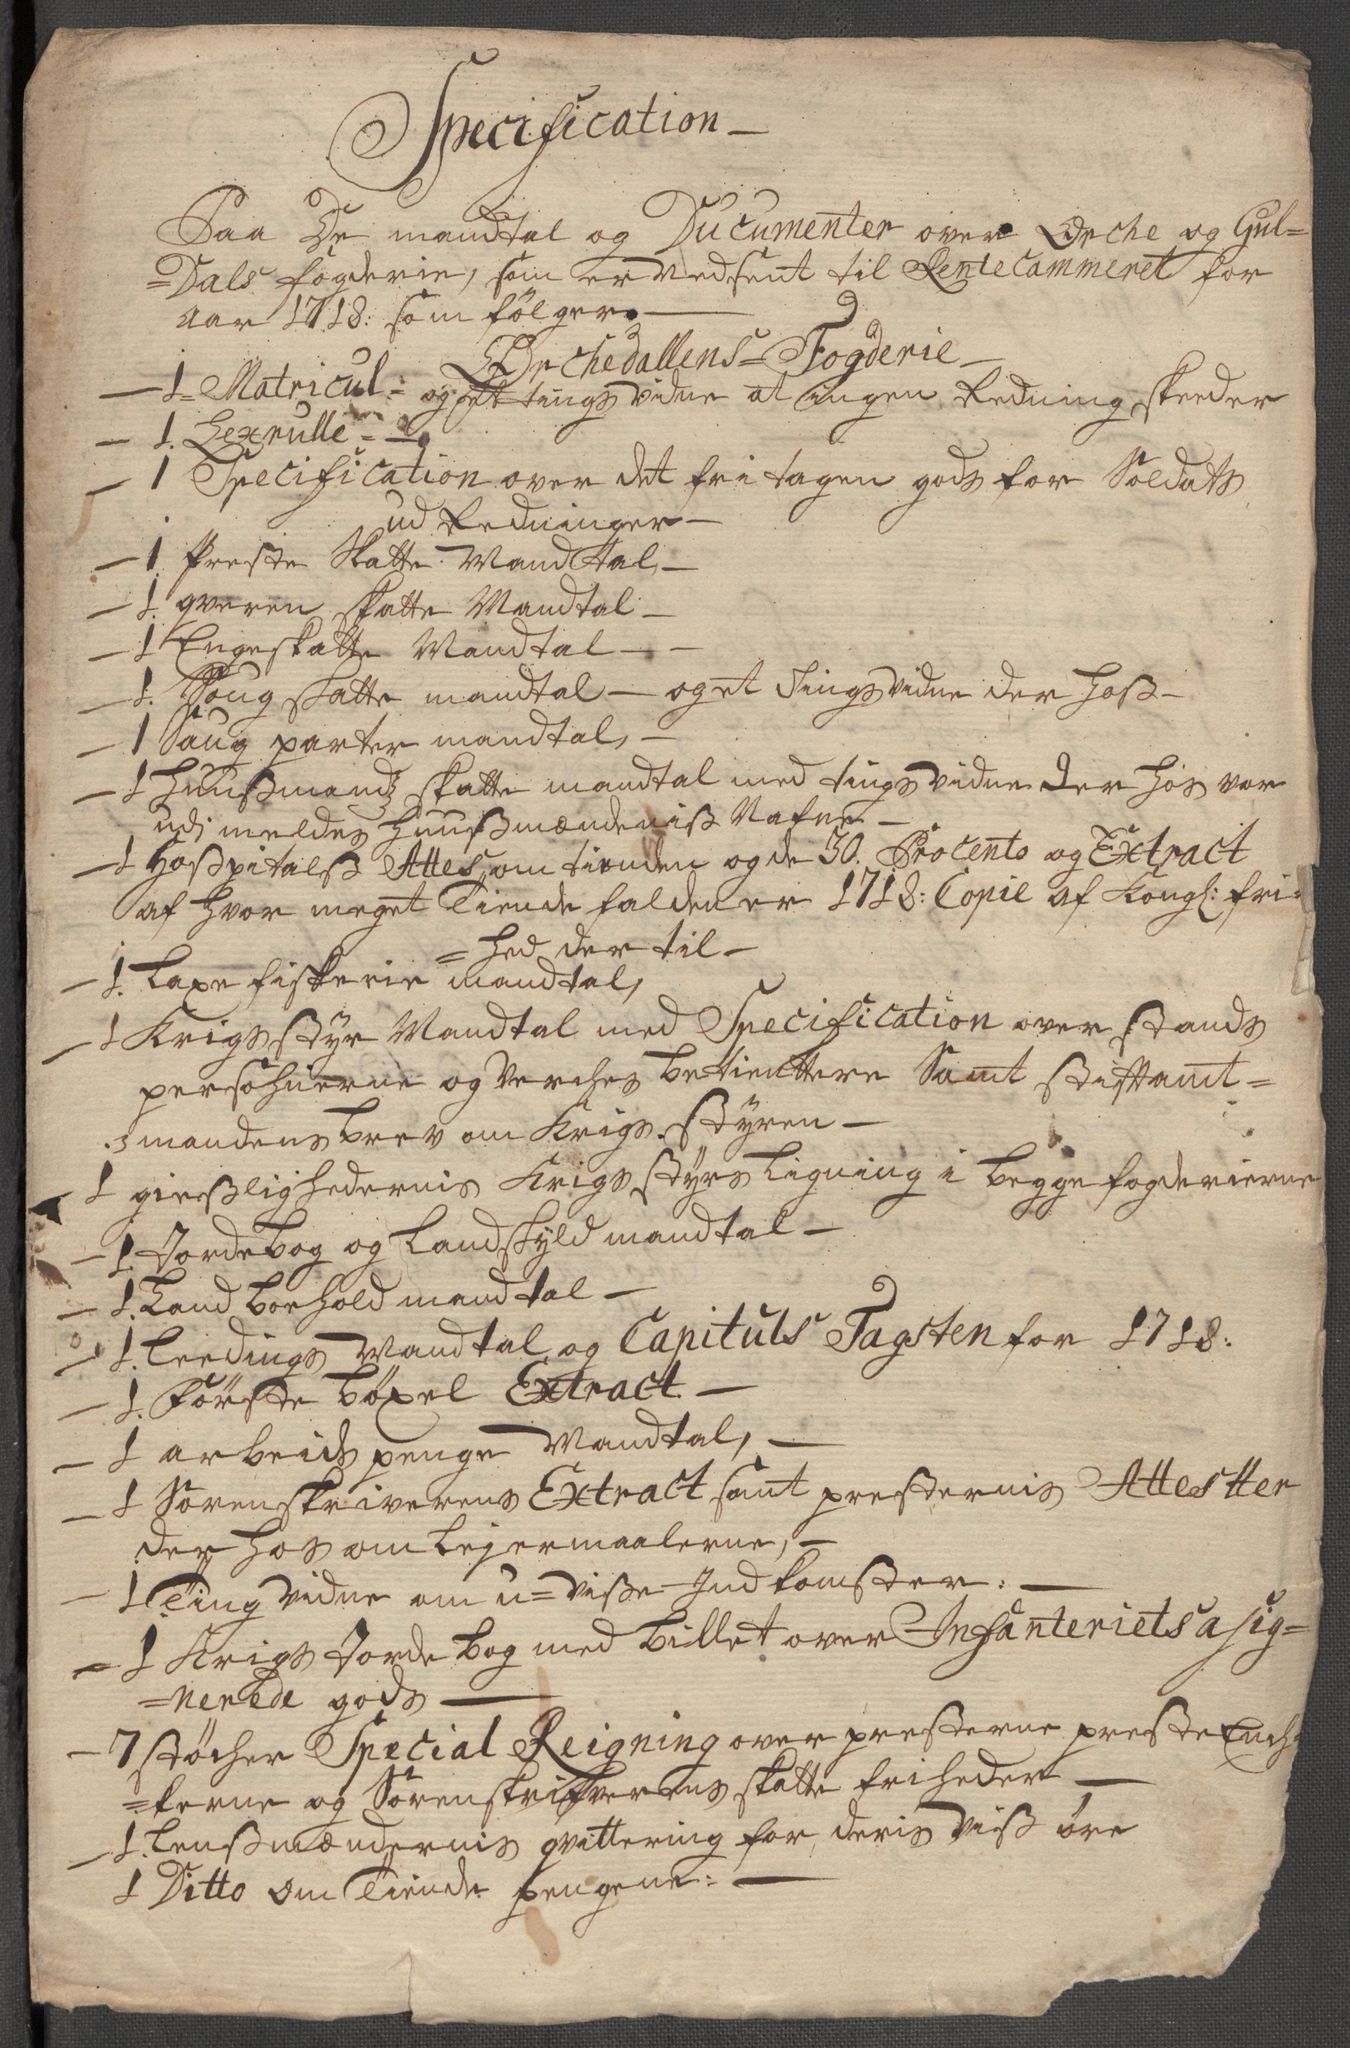 Specification
Paa De mandtal og Ducumenter over Orche og Gul=
=Dals fogderie, som er nedsent til Rentecammeret for
Aar 1718: som følger.
Orchedallens Fogderie
1. Matricul. og et tingsvidne at ingen Redning skeeder
1. Lexrulle
1 Specification over det fritagen gods for Soldats
ud Redninger
1. Preste Skatte Mandtal,
1. qveren skatte Mandtal
1 Engeskatte Mandtal
1. Saug skatte mandtal og et tingsvidne der hoss
1 Saug parter mandtal,
1 Huussmands skatte mandtal med tingsvidne der hos vor
udj meldes huussmændenis Nafne
1 Hosspitalss Attes om tienden og de 30. Procento og Extract
af hvor meget Tiende falden er 1718: Copie af Kongl: fri=
=hed der til
1. Laxe fiskerie mandtal,
1 Krigsstyr Mandtal med Specification over stands
persohnerne og Verches betienttere Samt stiftamt=
=mandens brev om Krigs styren
1 gieslighedernis Krigs styrs Ligning i begge fogderierne
1. Jordebog og Landskyld mandtal
1. Land borhold mandtal
1. Leedings Mandtal og Capituls Tagsten for 1718:
1. Første bøxel Extract
1 arbeids penge Mandtal,
1 Sorenskriverens Extract samt presternis Attestter
der hos om Lejermaalerne,
1 Ting vidne om u=visse Jndkomster:
1 Krigs Jorde bog med billet over Infanteriets asig=
=nerede gods
7 støcher Special Reigning over presterne preste Ench=
=kerne og Sorenskrifverens skatte friheder
1. Lenssmændernis qvittering for deris viss øre
1 Ditto om Tiende pengene: